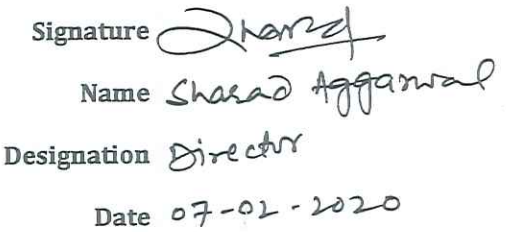 Signature Sharad
Name Sharad Aggarwal
Designation Director
Date 07-02-2020